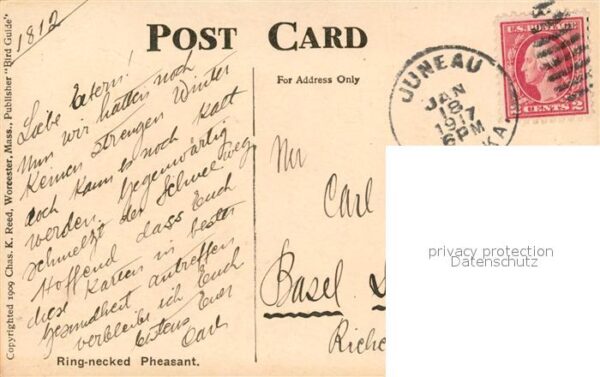 1812
POST CARD
For Address Only
Copyrighted 1909 Chas. K. Reed, Worcester, Mass., Publisher "Bird Guide"
Liebe Eltern!
Nun wir hatten noch
keinen strengen Winter
doch kann es noch kalt
werden. Gegenwärtig
schmelzt der Schnee weg
Hoffend dass Euch
diese Karten in bester
Gesundheit antreffen
verbleibe ich Euch
bestens Euer
Carl
Ring-necked Pheasant.
JUNEAU
JAN
18
1917
6PM
KA.
U.S. POSTAGE
2 CENTS 2
Carl
Basel
Riche
privacy protection
Datenschutz